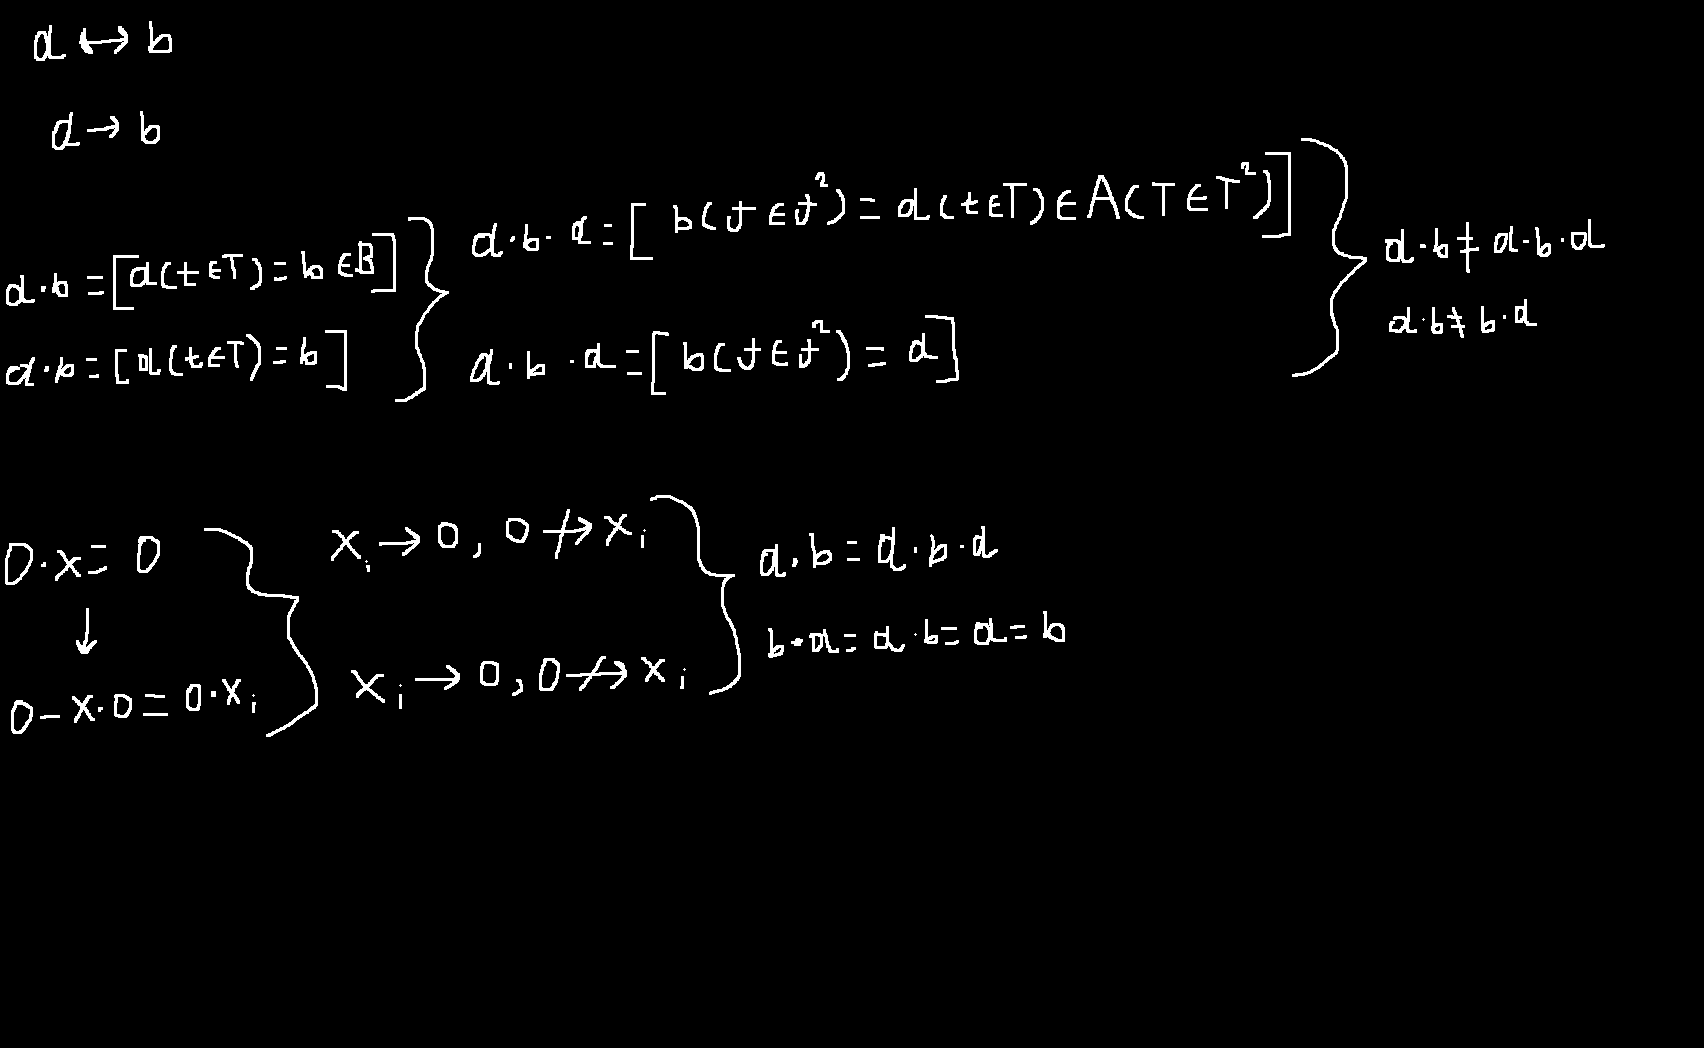 a ↔ b
a → b
a·b = [a(t∈T) = b∈B]
a·b = [a(t∈T) = b]
a·b·a = [b(J∈J²) = a(t∈T)∈A(T∈T²)]
a·b·a = [b(J∈J²) = a]
a·b ≠ a·b·a
a·b ≠ b·a
0·x = 0
↓
0 - x·0 = 0·xᵢ
xᵢ → 0, 0 ↛ xᵢ
xᵢ → 0, 0 ↛ xᵢ
a·b = a·b·a
b·a = a·b = a = b